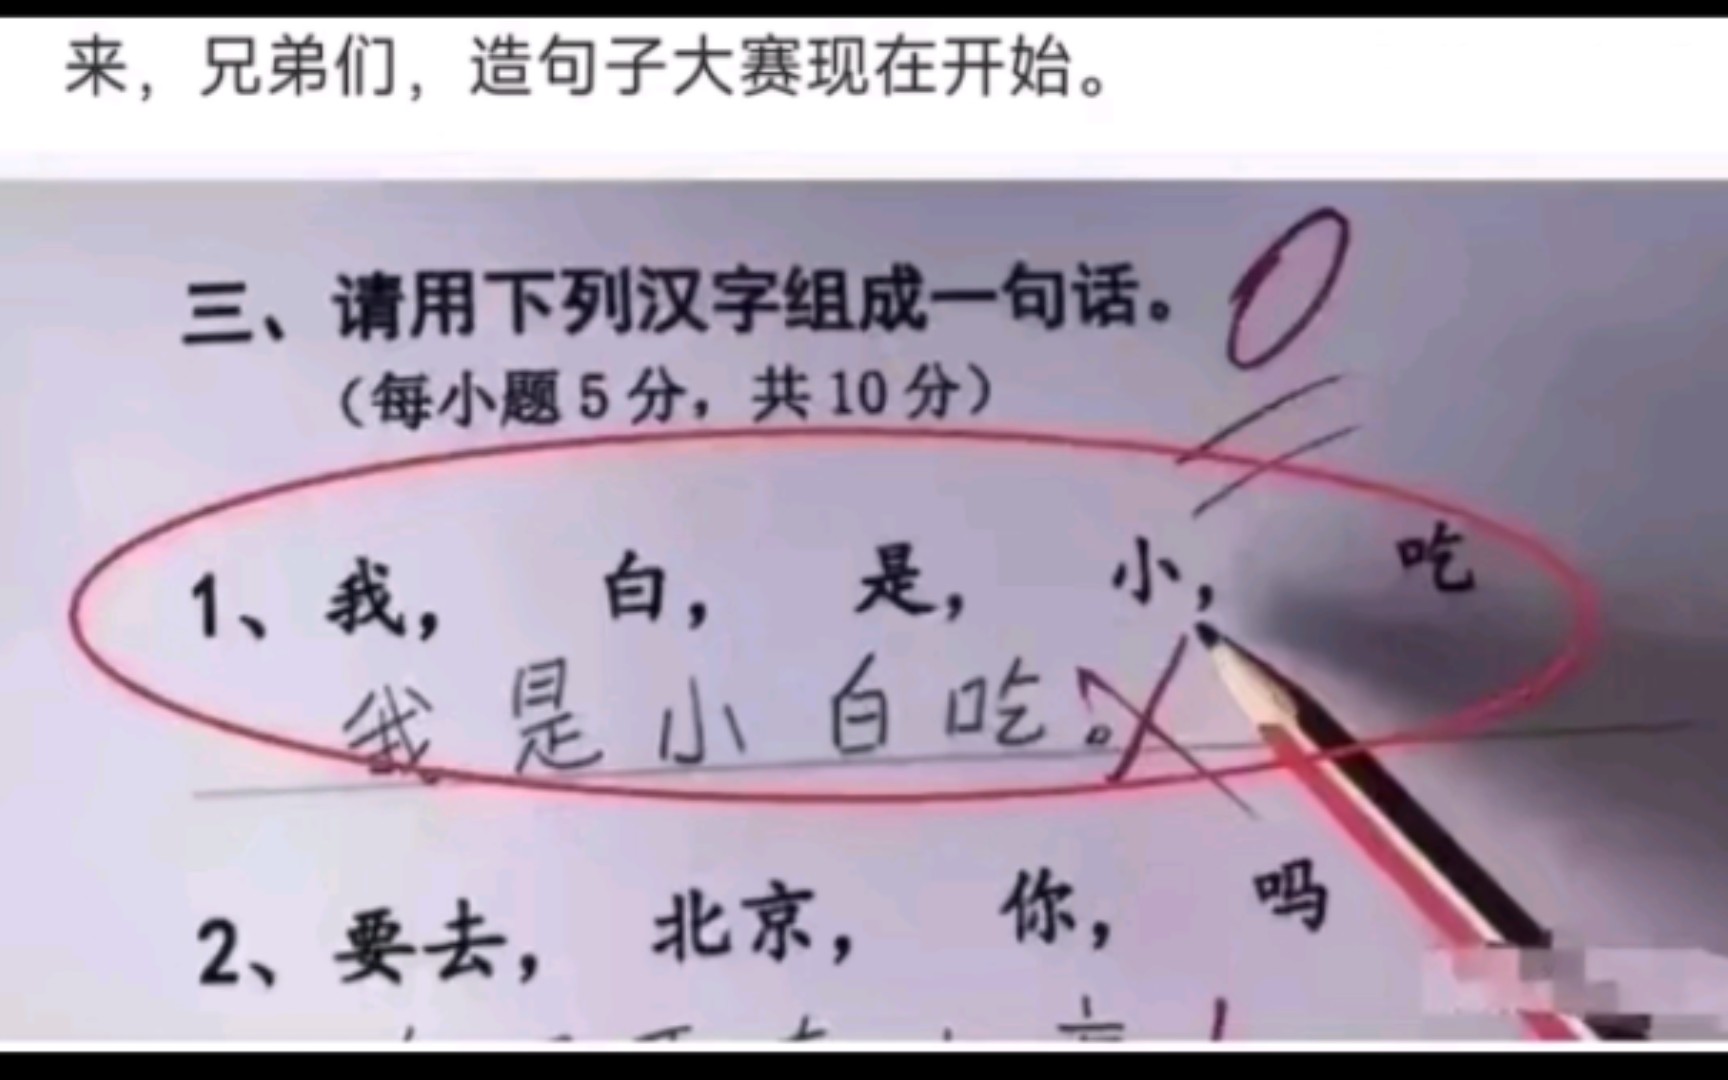 来，兄弟们，造句子大赛现在开始。
三、请用下列汉字组成一句话。 0
（每小题5分，共10分）
1、我， 白， 是， 小， 吃
我是小白吃。
2、要去， 北京， 你， 吗